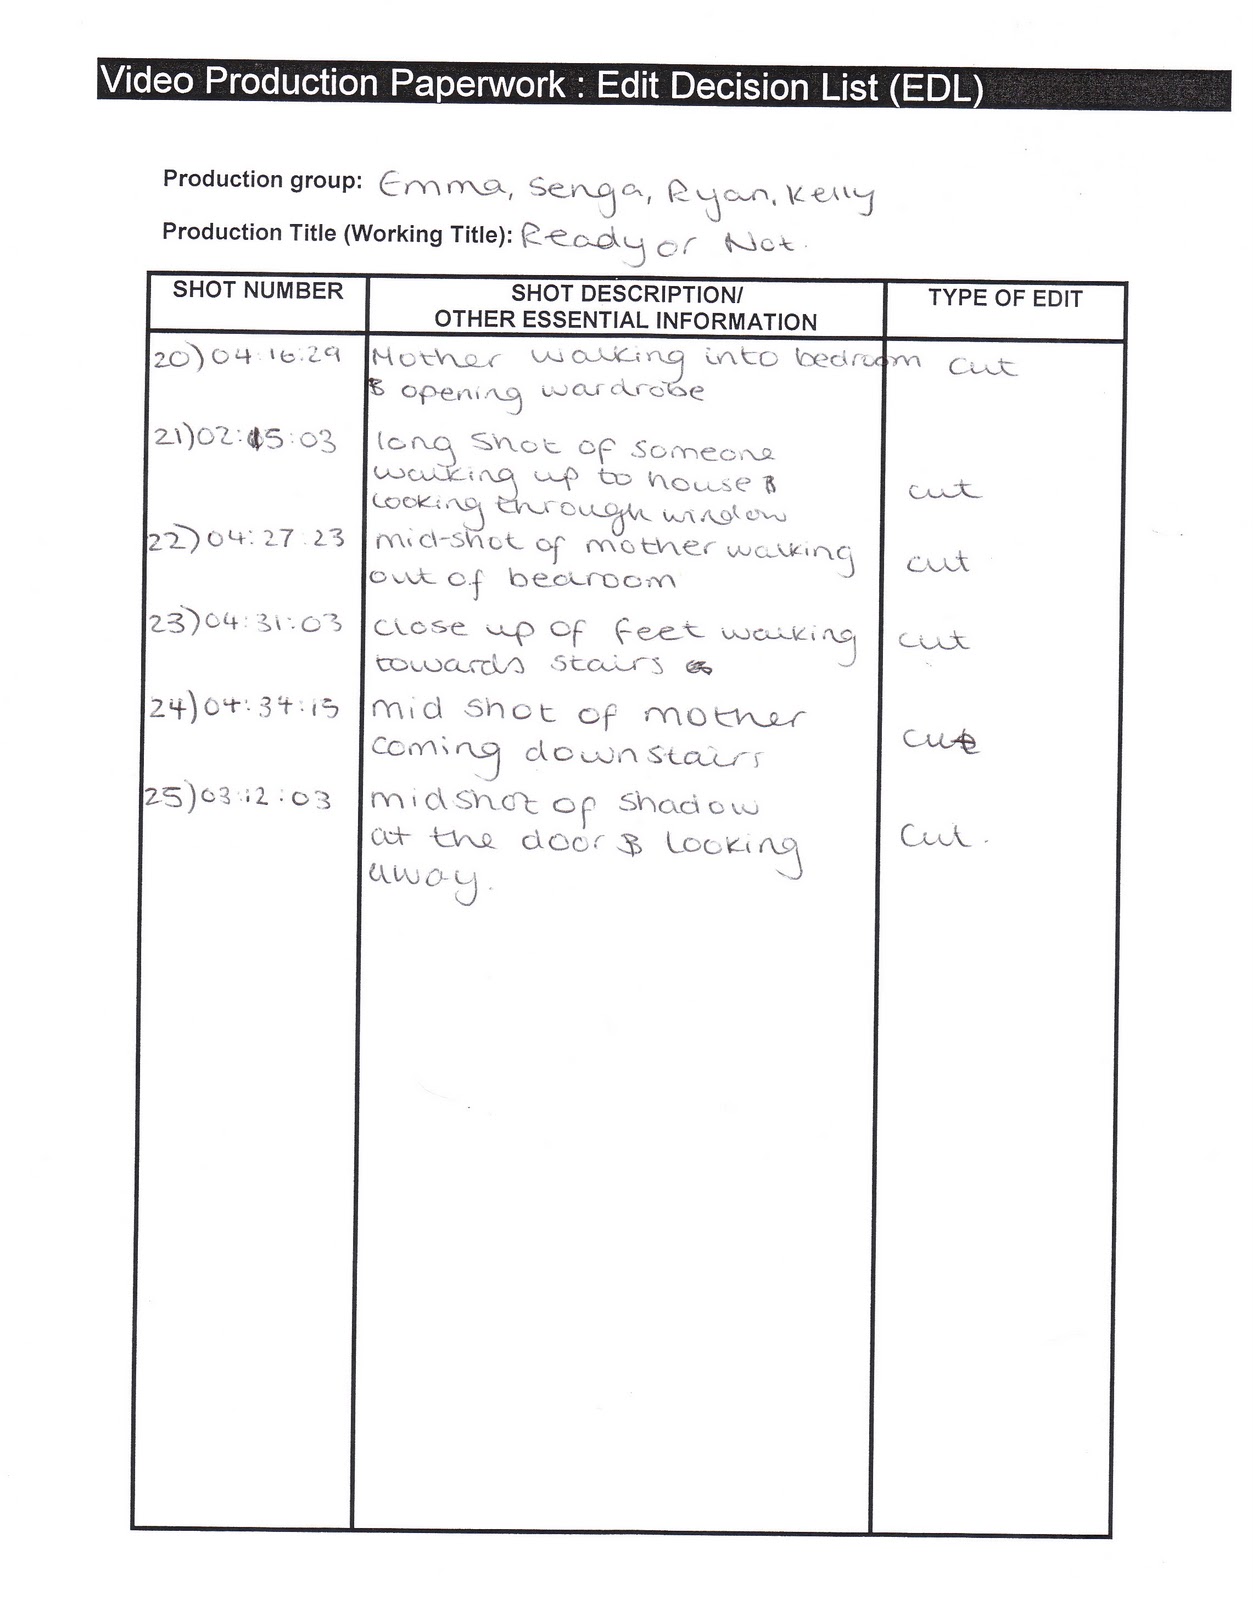 Video Production Paperwork : Edit Decision List (EDL)
Production group: Emma, Senga, Ryan, Kelly
Production Title (Working Title): Ready or Not.
SHOT NUMBER
SHOT DESCRIPTION/
OTHER ESSENTIAL INFORMATION
TYPE OF EDIT
20) 04:16:29 Mother walking into bedroom cut
& opening wardrobe
21) 02:15:03 long shot of someone
walking up to house &
looking through window
cut
22) 04:27:23 mid-shot of mother walking
out of bedroom
cut
23) 04:31:03 close up of feet walking
towards stairs
cut
24) 04:34:15 mid shot of mother
coming downstairs
cut
25) 03:12:03 midshot of shadow
at the door & looking
away.
cut.